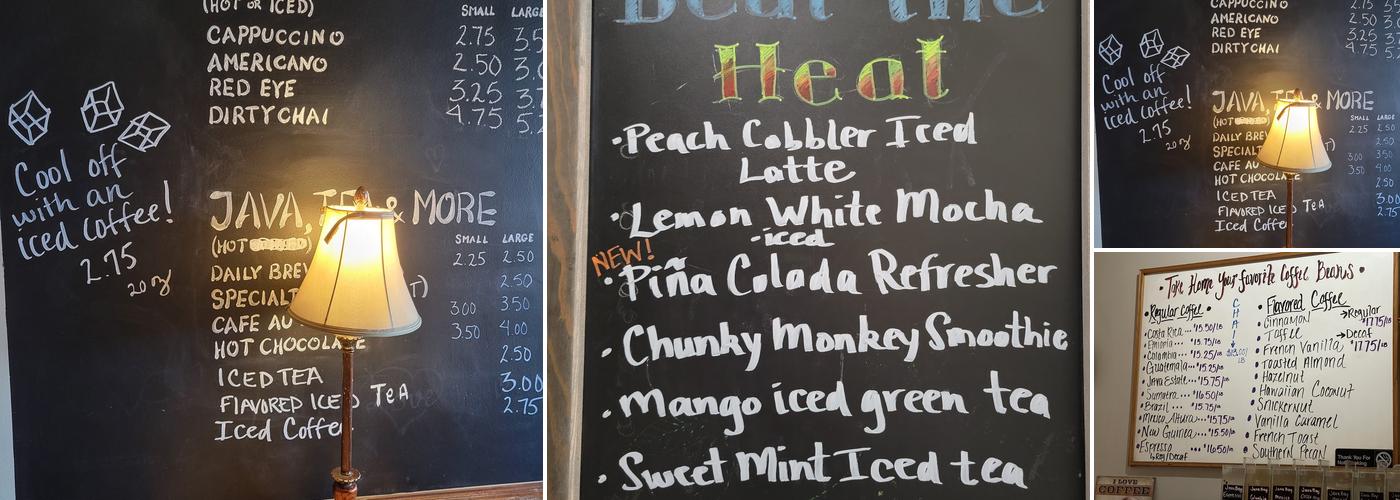 (HOT OR ICED)
SMALL LARGE
CAPPUCCINO 2.75
AMERICANO 2.50
RED EYE 3.25
DIRTY CHAI 4.75
Cool off
with an
iced coffee!
2.75
20 oz
JAVA, & MORE
(HOT
SMALL LARGE
DAILY 2.25 2.50
2.50
3.00 3.50
CAFE AU 3.50 4.00
HOT CHOCOLATE
2.50
ICED TEA 3.00
FLAVORED ICED TEA 2.75
Iced Coffee
Beat the
Heat
•Peach Cobbler Iced
Latte
•Lemon White Mocha
-iced
NEW!
•Piña Colada Refresher
•Chunky Monkey Smoothie
•Mango iced green tea
•Sweet Mint Iced tea
CAPPUCCINO
AMERICANO 2.50
RED EYE 3.25
DIRTY CHAI 4.75
Cool off
with an
iced coffee!
2.75
20 oz
JAVA, & MORE
(HOT
SMALL LARGE
DAILY 2.25 2.50
3.00 3.50
CAFE AU 3.50 4.00
HOT CHOCOLATE
2.50
ICED TEA 3.00
FLAVORED ICED TEA 2.75
Iced Coffee
•Take Home Your favorite Coffee Beans•
•Regular Coffee•
•Costa Rica... $15.50/lb
•Ethiopia... $15.75/lb
•Colombia... $15.25/lb
•Guatemala... $15.25/lb
•Java Estate... $15.75/lb
•Sumatra... $16.50/lb
•Brazil... $15.75/lb
•Mexico Altura... $15.75/lb
•New Guinea... $15.50/lb
•Espresso... $16.50/lb
Reg/Decaf
CHAI
LB
•Flavored Coffee
→Regular
$17.75/lb
→Decaf
$17.75/lb
•Cinnamon
•Toffee
•French Vanilla
•Toasted Almond
•Hazelnut
•Hawaiian Coconut
•Snickernut
•Vanilla Caramel
•French Toast
•Southern Pecan
Thank You For
Not Smoking
I LOVE
COFFEE